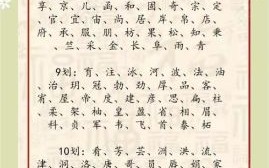 享、京、儿、函、和、固、奇、宗、定
官、宜、宙、尚、居、岸、帛、店、
府、承、服、朋、枋、果、松、知、秉
、竺、采、金、长、阜、雨、青
9划：育、注、泳、河、波、法、油
、治、玥、冠、勃、勁、厚、品、客
、宥、屋、帝、度、建、彦、思、扁、杜
、柔、架、柚、皇、盈、省、相、眉
、科、贞、军、韦、飞、首、泰、柘
10划：肴、芳、芸、洲、洪、流、
津、洞、洛、唐、哥、员、唇、娟、家